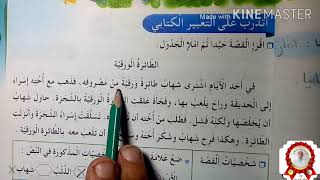 Made With
KINEMASTER
أتدرب على التعبير الكتابي
اقرأ القصة جيدا ثم املأ الجدول:
الطائرة الورقية
في أحد الأيام اشترى شهاب طائرة ورقية من مصروفه، فذهب مع أخته إسراء
إلى الحديقة وراح يلعب بها، وفجأة علقت الورقية بالشجرة. حاول شهاب
أن يخلصها ولكنه فشل. فطلب من أخته أن تسلقت إسراء الشجرة وأنزلت
الطائرة. وهكذا فرح شهاب وشكر أخته و أن تلعب معه بالطائرة الورقية.
شخصيات القصة
ضع علامة المذكورة في النص:
الذئب
شهاب